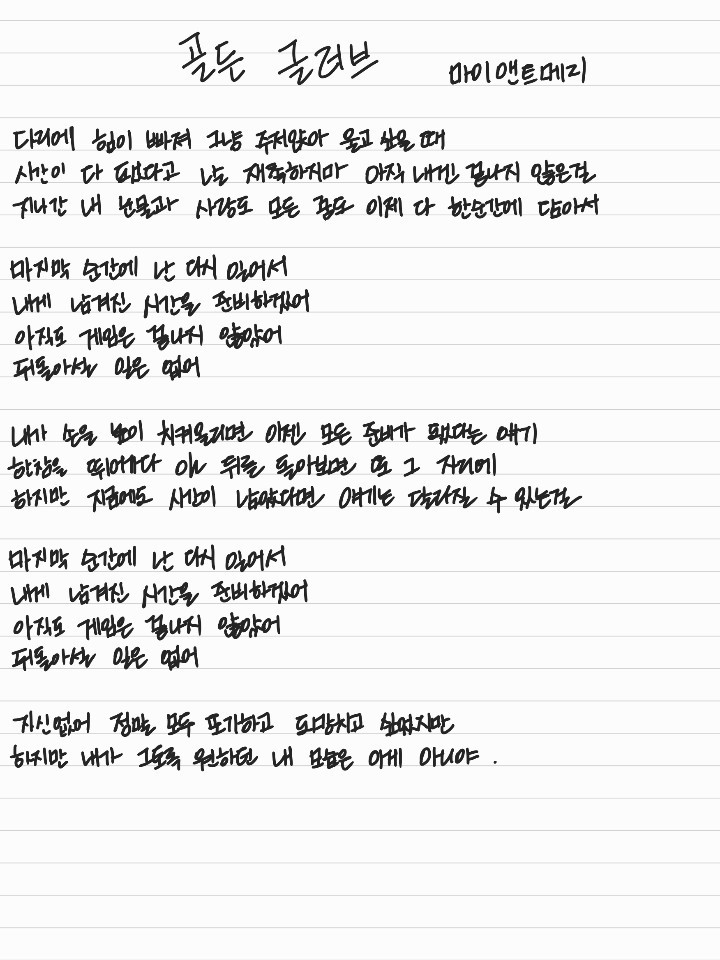 골든 글러브 마이앤트메리
다리에 힘이 빠져 그냥 주저앉아 울고 싶을 때
시간이 다 됐다고 날 재촉하지마 아직 내겐 끝나지 않은걸
지나간 내 눈물과 사랑도 모든 꿈도 이제 다 한순간에 담아서
마지막 순간에 난 다시 일어서
내게 남겨진 시간을 준비하겠어
아직도 게임은 끝나지 않았어
뒤돌아설 일은 없어
내가 손을 높이 치켜올리면 이젠 모든 준비가 됐다는 얘기
한참을 뛰어가다 뒤를 돌아보면 또 그 자리에
하지만 지금에도 시간이 남았다면 얘기는 달라질 수 있는걸
마지막 순간에 난 다시 일어서
내게 남겨진 시간을 준비하겠어
아직도 게임은 끝나지 않았어
뒤돌아설 일은 없어
자신없어 정말 모두 포기하고 도망치고 싶었지만
하지만 내가 그토록 원하던 내 모습은 이게 아니야.